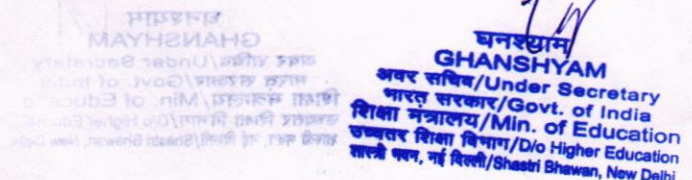 घनश्याम
GHANSHYAM
अवर सचिव/Under Secretary
भारत सरकार/Govt. of India
शिक्षा मंत्रालय/Min. of Education
उच्चतर शिक्षा विभाग/D/o Higher Education
शास्त्री भवन, नई दिल्ली/Shastri Bhawan, New Delhi